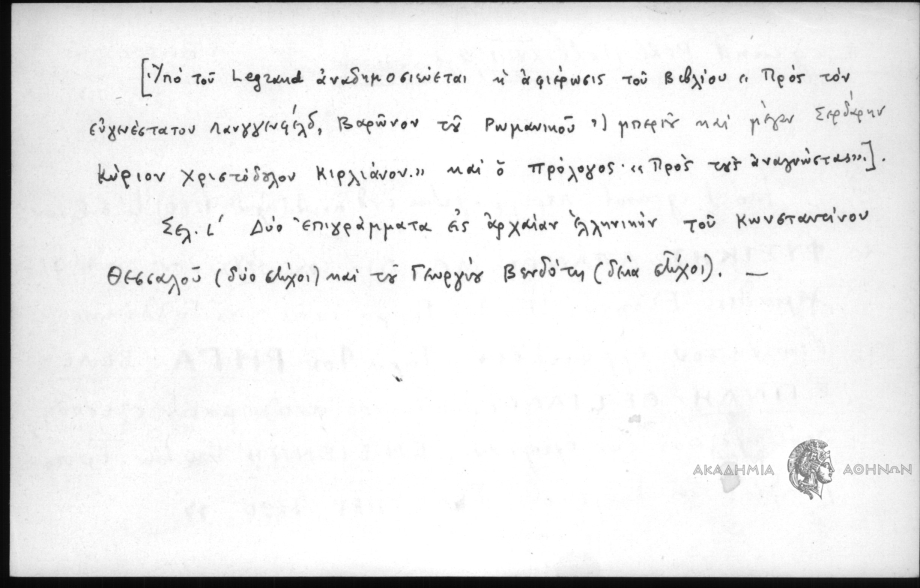 [Ὑπὸ τοῦ Legrand ἀναδημοσιεύεται ἡ ἀφιέρωσις τοῦ Βιβλίου «Πρὸς τὸν
εὐγενέστατον Λανγγενφέλδ, Βαρῶνον τοῦ Ρωμανικοῦ ») μπερὶν καὶ μέγαν Σερδάρην
Κύριον Χριστόδουλον Κιρλιάνον.» καὶ ὁ πρόλογος· «Πρὸς τοὺς ἀναγνώστας».].
Σελ. ι´ Δύο Ἐπιγράμματα εἰς ἀρχαίαν Ἑλληνικὴν τοῦ Κωνσταντίνου
Θεσσαλοῦ (δύο στίχοι) καὶ τοῦ Γεωργίου Βενδότη (δέκα στίχοι). —
ΑΚΑΔΗΜΙΑ ΑΘΗΝΩΝ